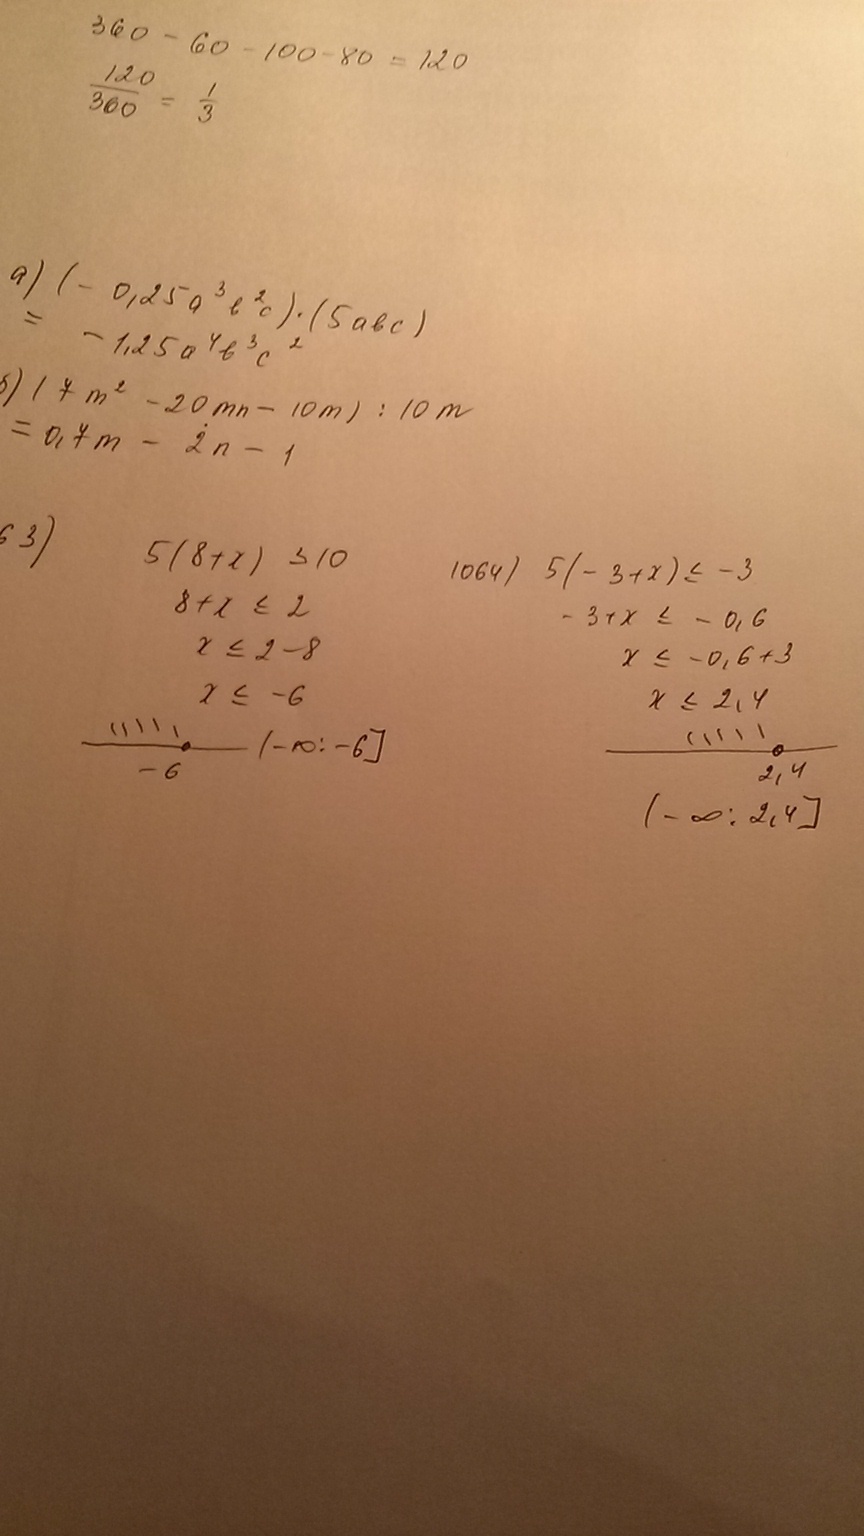 360 - 60 - 100 - 80 = 120
120/360 = 1/3
а) (- 0,25a³b²c)·(5abc)
= - 1,25a⁴b³c²
б) (7m² - 20mn - 10m) : 10m
= 0,7m - 2n - 1
63)
5(8+x) ≤ 10
8+x ≤ 2
x ≤ 2-8
x ≤ -6
-6
(-∞: -6]
1064) 5(-3+x) ≤ -3
-3+x ≤ -0,6
x ≤ -0,6+3
x ≤ 2,4
2,4
(-∞: 2,4]